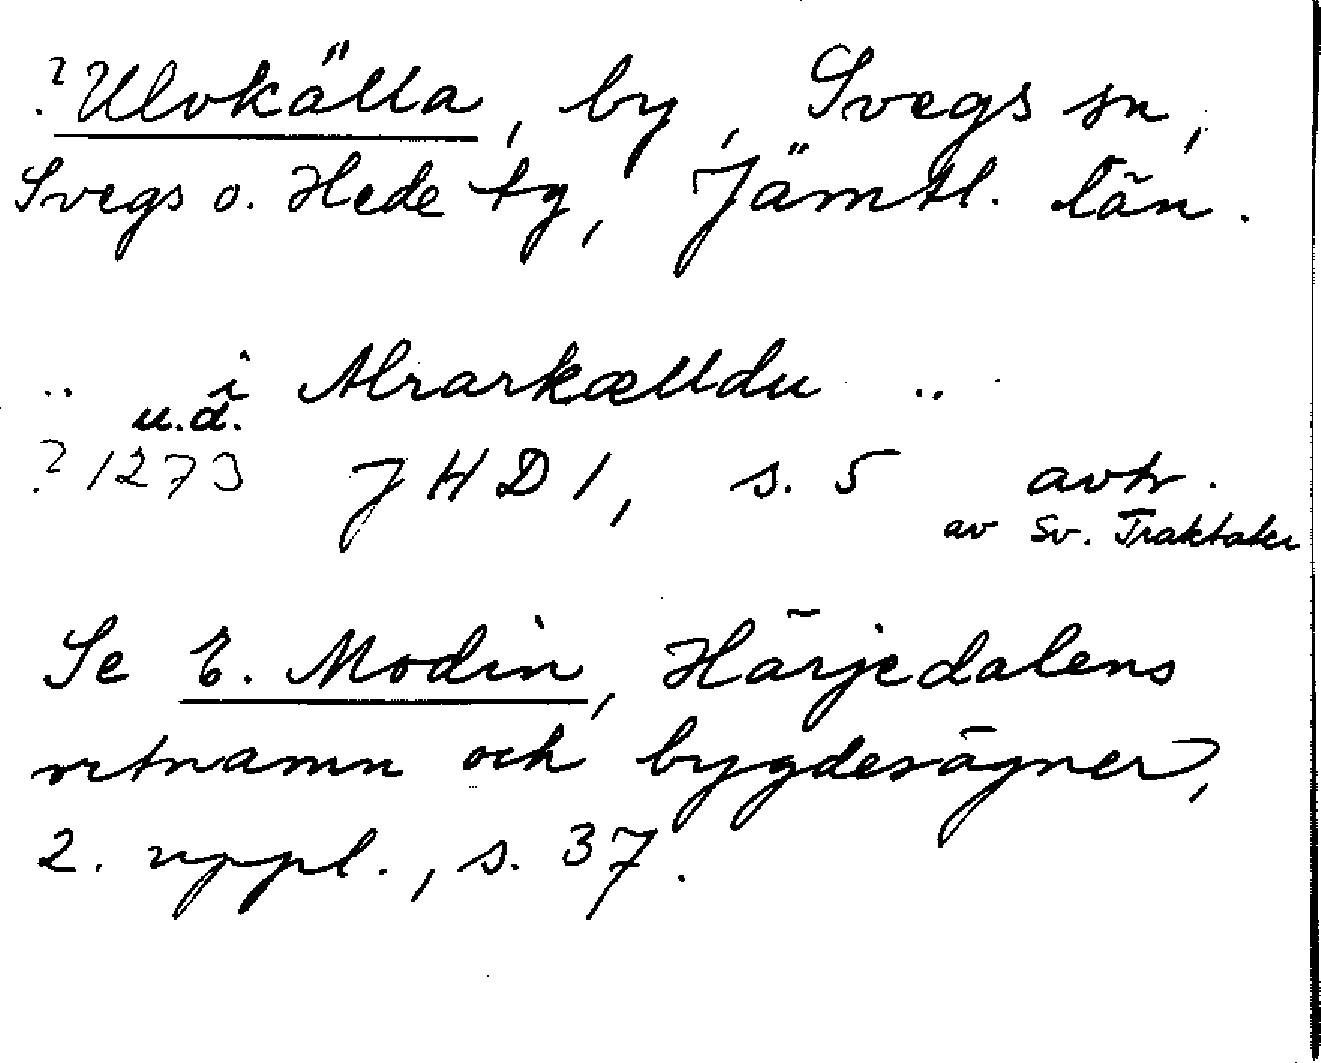 ? Ulvkälla, by, Svegs sn,
Svegs o. Hede tg, Jämtl. län.
.. i Alrarkælldu ..
u.d.
? 1273 JHD 1, s. 5 avtr.
av Sv. Traktater
Se E. Modin, Härjedalens
ortnamn och bygdesägner,
2. uppl., s. 37.